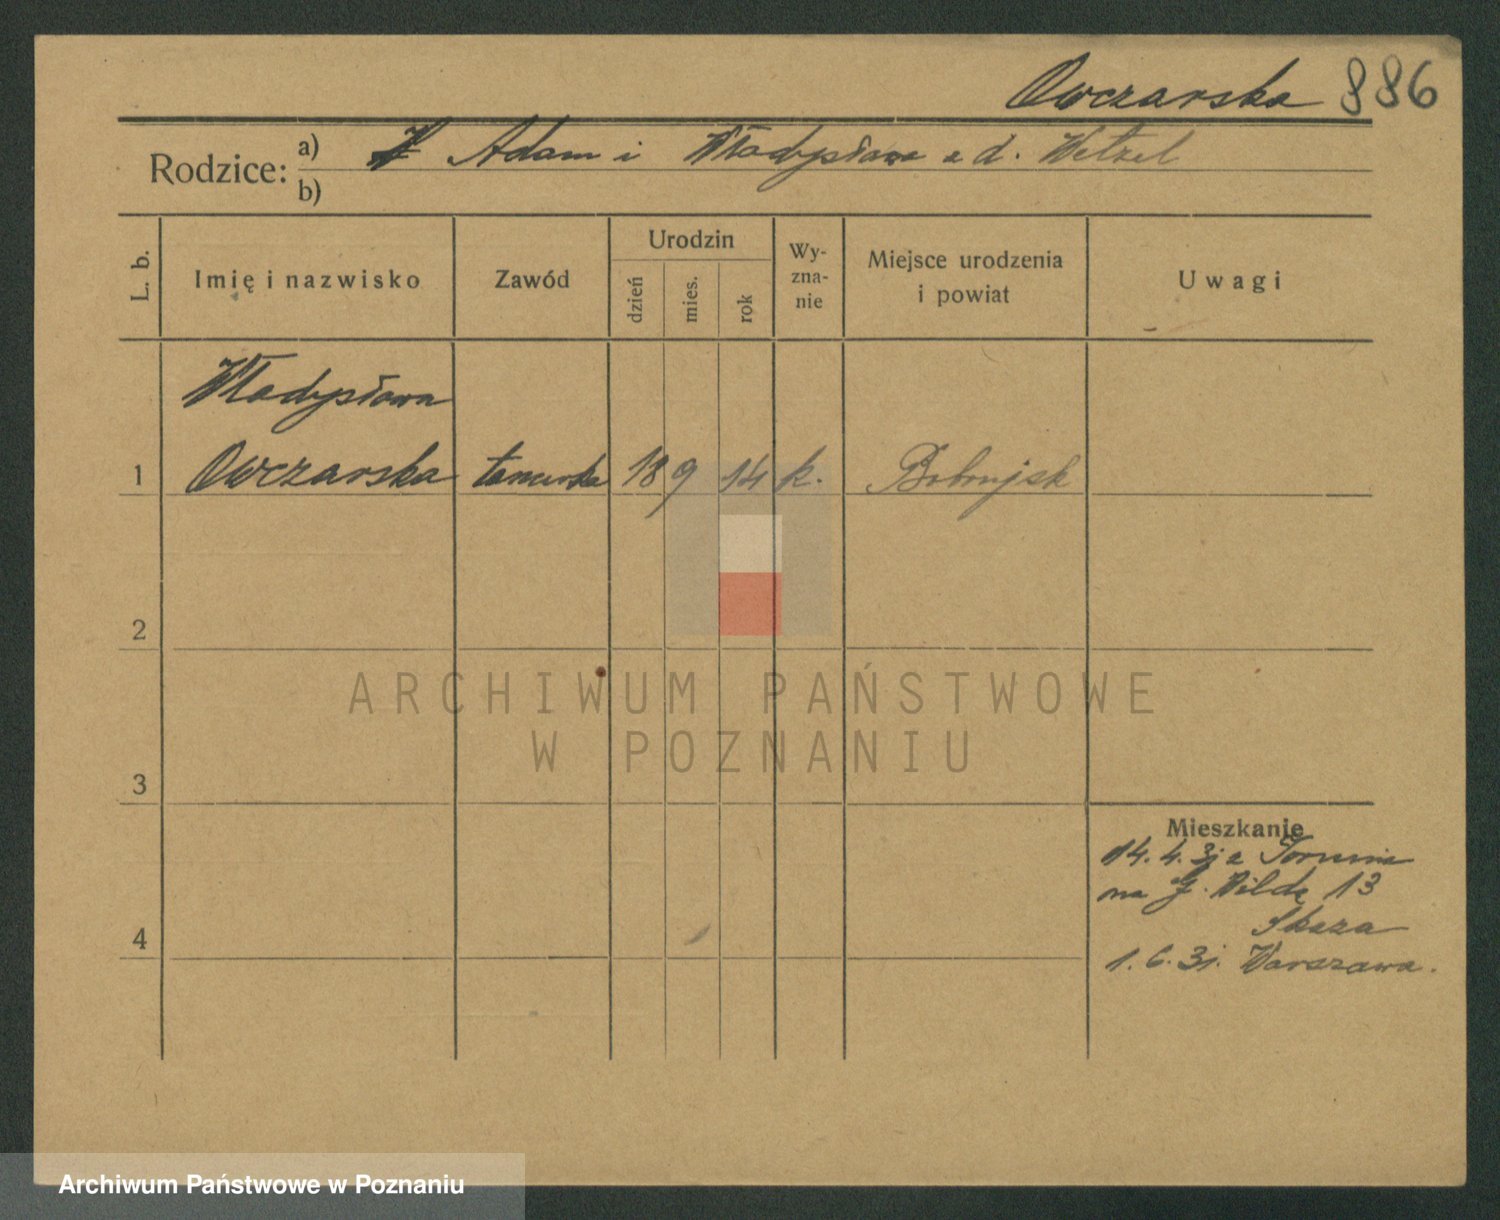 Owczarska 886
Rodzice: a) Adam i Władysława z d. Wetzel
b)
L. b. Imię i nazwisko Zawód Urodzin dzień mies. rok Wy-zna-nie Miejsce urodzenia i powiat Uwagi
Władysława
1 Owczarska tancerka 18 9 14 k. Bobrujsk
2
3
4
Mieszkanie
14. 4. 31 z Torunia
na G. Wildę 13
Skaza
1. 6. 31. Warszawa.
ARCHIWUM PAŃSTWOWE
W POZNANIU
Archiwum Państwowe w Poznaniu